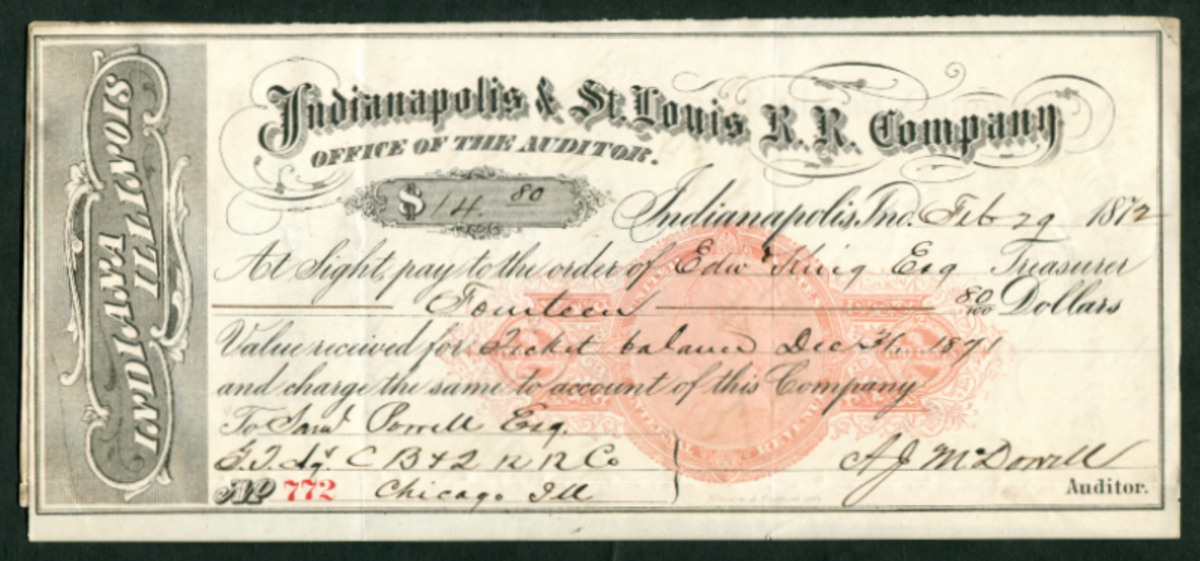 INDIANA
ILLINOIS
Indianapolis & St. Louis R. R. Company
OFFICE OF THE AUDITOR.
$ 14. 80
Indianapolis, Ino. Feb 29 1872
At Sight, pay to the order of Edw King Esq Treasurer
Fourteen 80/100 Dollars
Value received for Ticket balance Dec 31 1871
and charge the same to account of this Company
To Saml Powell Esq.
G.T. Agt. C B & Q R R Co
No 772 Chicago Ill
A J McDowell
Auditor.